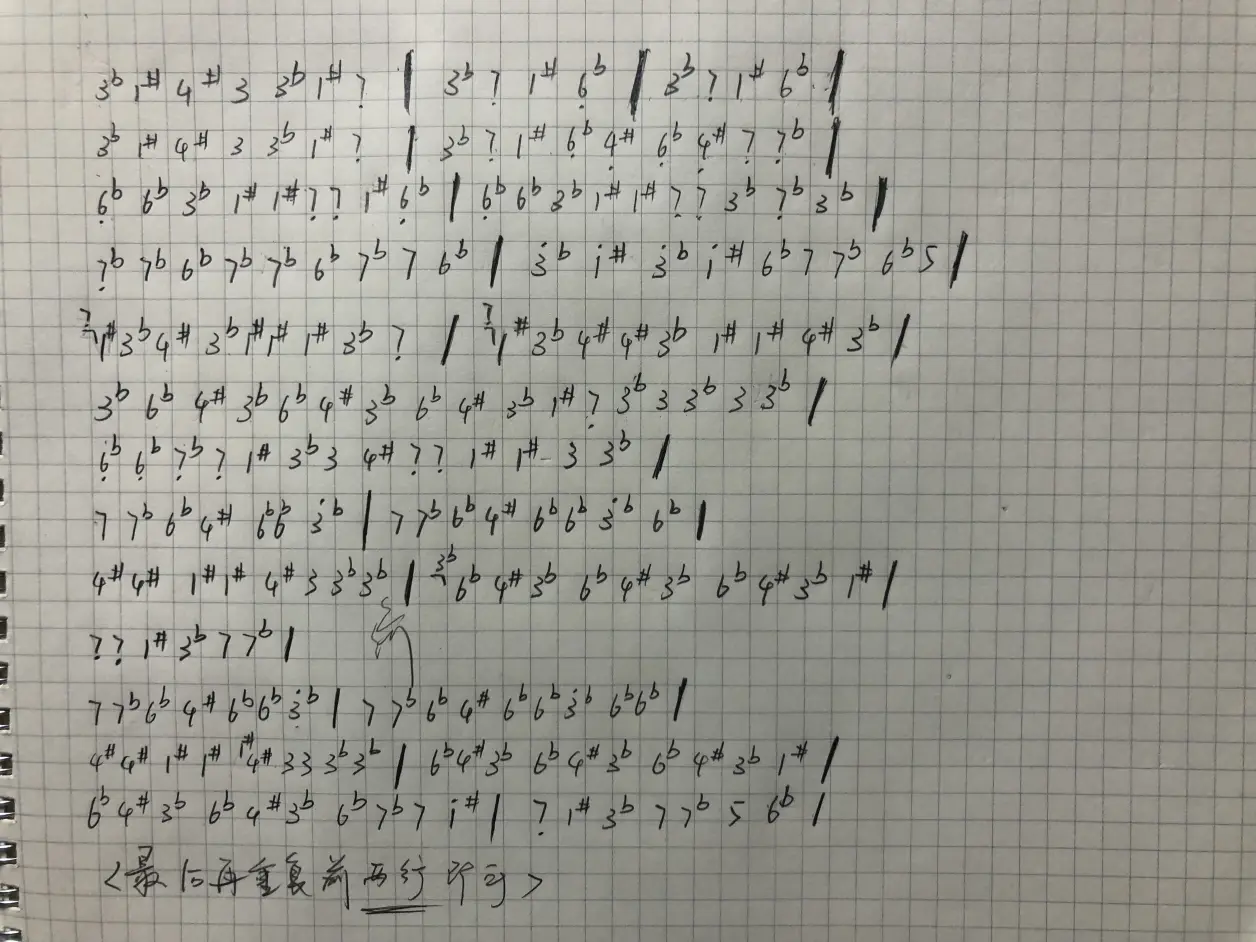 3ᵇ 1# 4# 3 3ᵇ 1# 7̣ | 3ᵇ 7̣ 1# 6̣ᵇ | 3ᵇ 7̣ 1# 6̣ᵇ |
3ᵇ 1# 4# 3 3ᵇ 1# 7̣ | 3ᵇ 7̣ 1# 6̣ᵇ 4̣# 6̣ᵇ 4̣# 7̣ 7̣ᵇ |
6̣ᵇ 6ᵇ 3ᵇ 1# 1# 7̣ 7̣ 1# 6̣ᵇ | 6̣ᵇ 6ᵇ 3ᵇ 1# 1# 7̣ 7̣ 3ᵇ 7̣ᵇ 3ᵇ |
7̣ᵇ 7ᵇ 6ᵇ 7ᵇ 7ᵇ 6ᵇ 7ᵇ 7 6ᵇ | 3̇ᵇ 1̇# 3̇ᵇ 1̇# 6ᵇ 7 7ᵇ 6ᵇ 5 |
7̣ 1# 3ᵇ 4# 3ᵇ 1# 1# 1# 3ᵇ 7̣ | 7̣ 1# 3ᵇ 4# 4# 3ᵇ 1# 1# 4# 3ᵇ |
3ᵇ 6ᵇ 4# 3ᵇ 6ᵇ 4# 3ᵇ 6ᵇ 4# 3ᵇ 1# 7̣ 3ᵇ 3 3ᵇ 3 3ᵇ |
6̣ᵇ 6̣ᵇ 7̣ᵇ 7̣ 1# 3ᵇ 3 4# 7̣ 7̣ 1# 1# 3 3ᵇ |
7 7ᵇ 6ᵇ 4# 6ᵇ 6ᵇ 3̇ᵇ | 7 7ᵇ 6ᵇ 4# 6ᵇ 6ᵇ 3̇ᵇ 6ᵇ |
4# 4# 1# 1# 4# 3 3ᵇ 3ᵇ | 3ᵇ 6ᵇ 4# 3ᵇ 6ᵇ 4# 3ᵇ 6ᵇ 4# 3ᵇ 1# |
7̣ 7̣ 1# 3ᵇ 7 7ᵇ |
7 7ᵇ 6ᵇ 4# 6ᵇ 6ᵇ 3̇ᵇ | 7 7ᵇ 6ᵇ 4# 6ᵇ 6ᵇ 3̇ᵇ 6ᵇ 6ᵇ |
4# 4# 1# 1# 1# 4# 3 3 3ᵇ 3ᵇ | 6ᵇ 4# 3ᵇ 6ᵇ 4# 3ᵇ 6ᵇ 4# 3ᵇ 1# |
6ᵇ 4# 3ᵇ 6ᵇ 4# 3ᵇ 6ᵇ 7ᵇ 7 1̇# | 7̣ 1# 3ᵇ 7 7ᵇ 5 6ᵇ |
<最后再重复前两行即可>